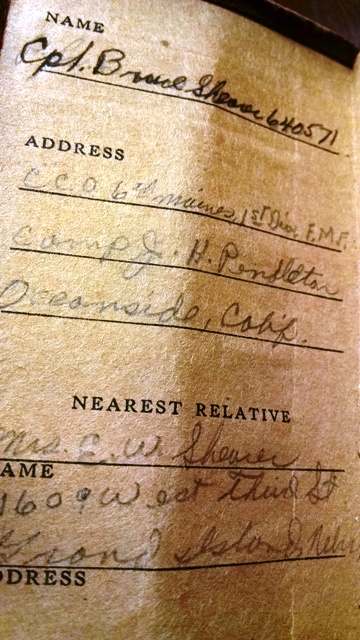 NAME
Cpl. Bruce Shearer 640571
ADDRESS
6th Marines, 1st Div. F.M.F.
Camp J. H. Pendleton
Oceanside, Calif.
NEAREST RELATIVE
Mrs. E. W. Shearer
NAME
1609 West Third St
Grand Island, Nebr
ADDRESS